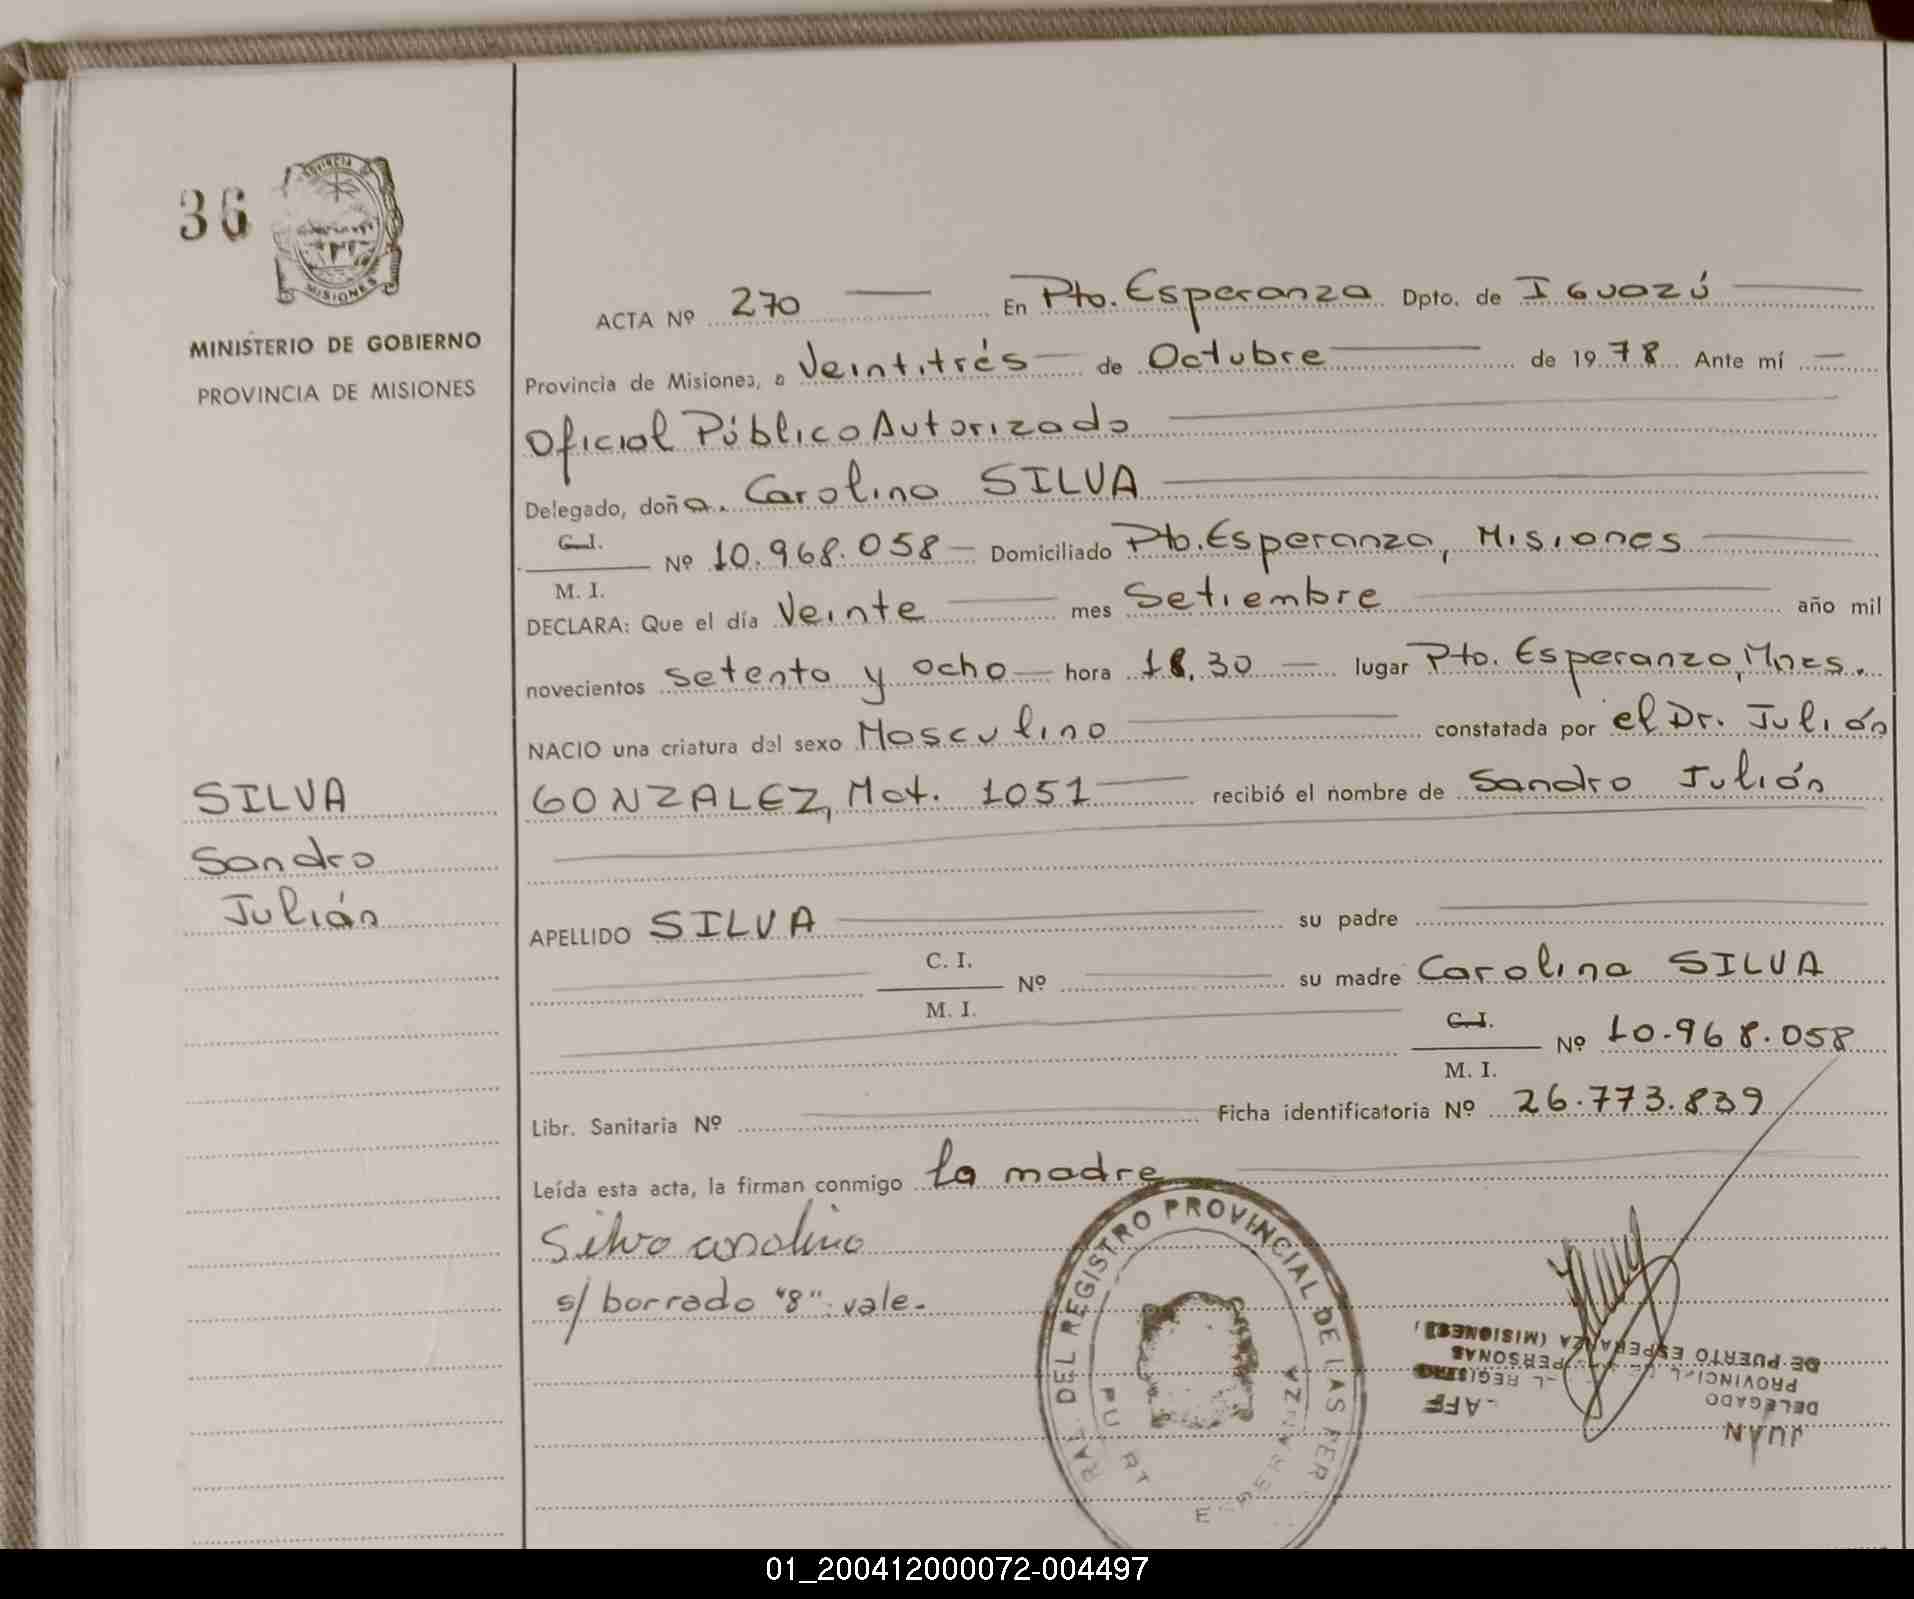 36
PROVINCIA
MISIONES
MINISTERIO DE GOBIERNO
PROVINCIA DE MISIONES
ACTA Nº 270 En Pto. Esperanza Dpto. de Iguazú
Provincia de Misiones, a Veintitrés de Octubre de 1978 Ante mí
Oficial Público Autorizado
Delegado, doña. Carolina SILVA
C.I.
M. I. Nº 10.968.058 Domiciliado Pto. Esperanza, Misiones
DECLARA: Que el día Veinte mes Setiembre año mil
novecientos setenta y ocho hora 18,30 lugar Pto. Esperanza, Mnes.
NACIO una criatura del sexo Masculino constatada por el Dr. Julián
GONZALEZ, Mat. 1051 recibió el nombre de Sandro Julián
SILVA
Sandro
Julián
APELLIDO SILVA su padre
C. I.
M. I. Nº su madre Carolina SILVA
C.I.
M. I. Nº 10.968.058
Libr. Sanitaria Nº Ficha identificatoria Nº 26.773.839
Leída esta acta, la firman conmigo la madre
Silva Carolina
s/ borrado "8": vale.
DEL REGISTRO PROVINCIAL DE LAS PER
JUAN
DELEGADO
PERSONAS
DE PUERTO ESPERANZA (MISIONES)
01_200412000072-004497